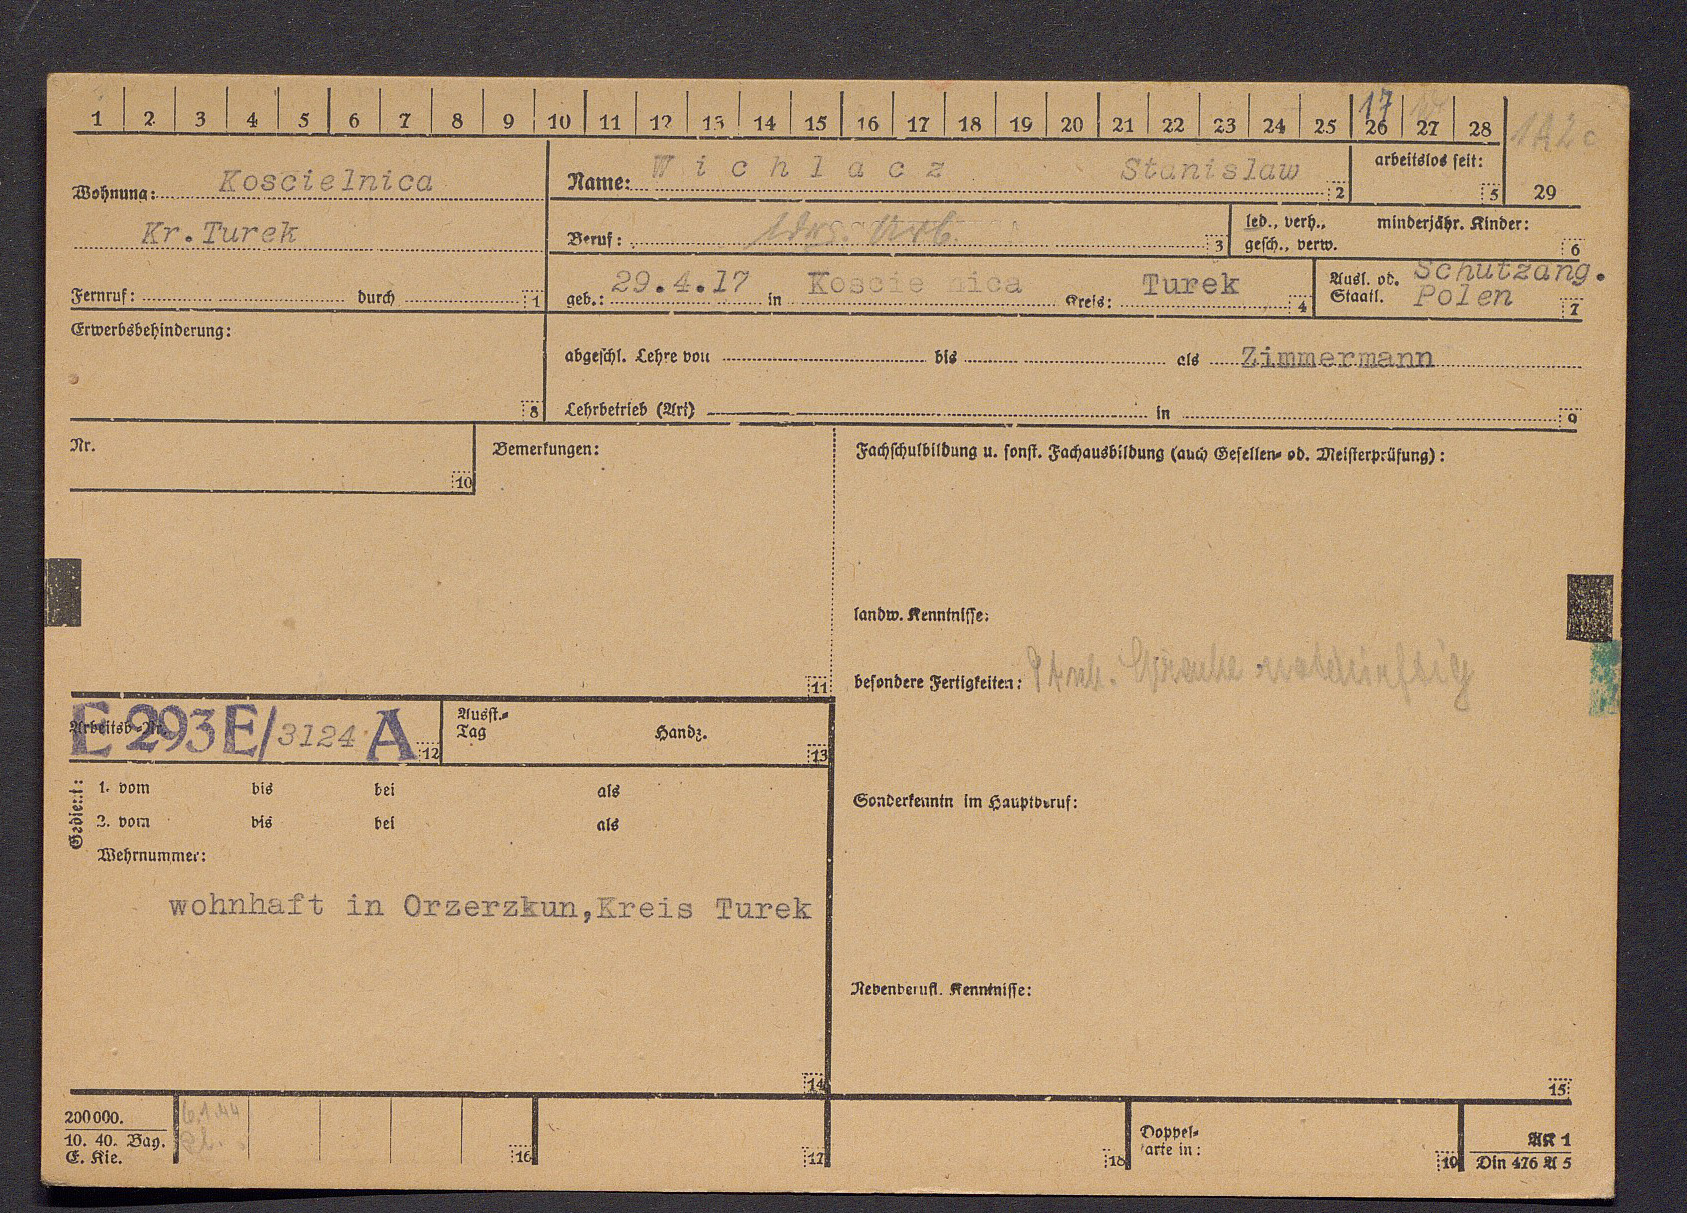 1 2 3 4 5 6 7 8 9 10 11 12 13 14 15 16 17 18 19 20 21 22 23 24 25 26 27 28
17
1A2c
Wohnung: Koscielnica
Kr. Turek
Fernruf: durch 1
Name: Wichlacz Stanislaw 2
arbeitslos seit: 5
29
Beruf: 3
led., verh., minderjähr. Kinder:
gesch., verw. 6
geb.: 29.4.17 in Koscie nica Kreis: Turek 4
Ausl. od. Schutzang.
Staatl. Polen 7
Erwerbsbehinderung:
8
abgeschl. Lehre von bis als Zimmermann
Lehrbetrieb (Art) in 9
Nr.
10
Bemerkungen:
11
Fachschulbildung u. sonst. Fachausbildung (auch Gesellen- od. Meisterprüfung):
landw. Kenntnisse:
besondere Fertigkeiten:
Arbeitsb.-Nr. E 293 E/3124 A 12
Ausst.-
Tag Handz.
13
Gedient:
1. vom bis bei als
2. vom bis bei als
Wehrnummer:
wohnhaft in Orzerzkun, Kreis Turek
14
Sonderkenntn im Hauptberuf:
Nebenberufl. Kenntnisse:
15
200000.
10. 40. Bay.
E. Kie.
6.1.44
16
17
18
Doppel-
karte in:
19
AK 1
Din 476 A 5